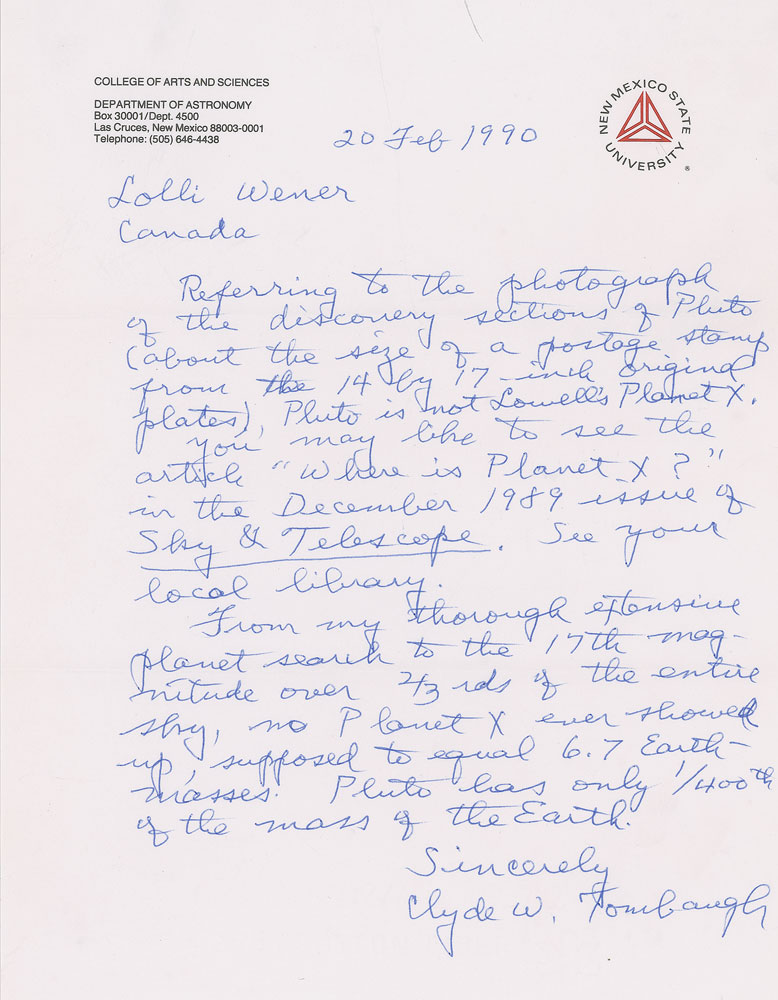 COLLEGE OF ARTS AND SCIENCES
DEPARTMENT OF ASTRONOMY
Box 30001/Dept. 4500
Las Cruces, New Mexico 88003-0001
Telephone: (505) 646-4438
NEW MEXICO STATE
UNIVERSITY
®
20 Feb 1990
Lolli Wener
Canada
Referring to the photograph
of the discovery sections of Pluto
(about the size of a postage stamp
from the 14 by 17-inch original
plates), Pluto is not Lowell's Planet X.
You may like to see the
article "Where is Planet X?"
in the December 1989 issue of
Sky & Telescope. See your
local library.
From my thorough extensive
planet search to the 17th mag-
nitude over 2/3 rds of the entire
sky, no Planet X ever showed
up, supposed to equal 6.7 Earth-
masses. Pluto has only 1/400th
of the mass of the Earth.
Sincerely
Clyde W. Tombaugh